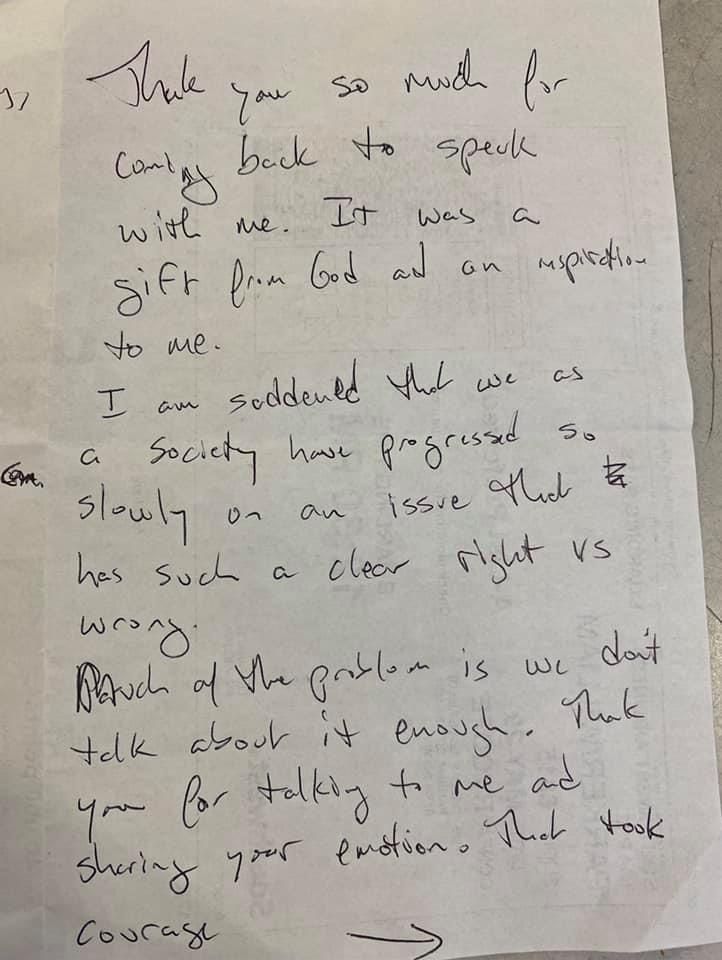 Thank you so much for
coming back to speak
with me. It was a
gift from God ad an inspiration
to me.
I am saddened that we as
a society have progressed so
slowly on an issue that
has such a clear right vs
wrong.
Much of the problem is we don't
talk about it enough. Thank
you for talking to me and
sharing your emotion. That took
courage →